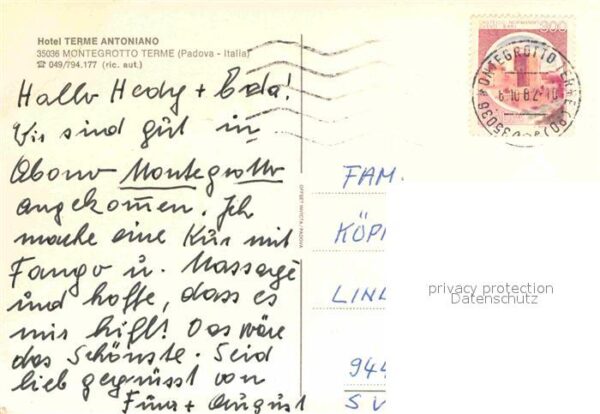 Hotel TERME ANTONIANO
35036 MONTEGROTTO TERME (Padova - Italia)
☎ 049/794.177 (ric. aut.)
Hallo Hedy +
Wir sind gut in
Abano Montegrotto
angekommen. Ich
mache eine Kur mit
Fango u. Massage
und hoffe, dass es
mir hilft! Das wäre
das Schönste. Seid
lieb gegrüsst von
+ August
OFFSET INVICTA - PADOVA
300
35036 MONTEGROTTO TERME (PD)
6.10.82.10
FAM.
KÖP
LIN
944
SV
privacy protection
Datenschutz